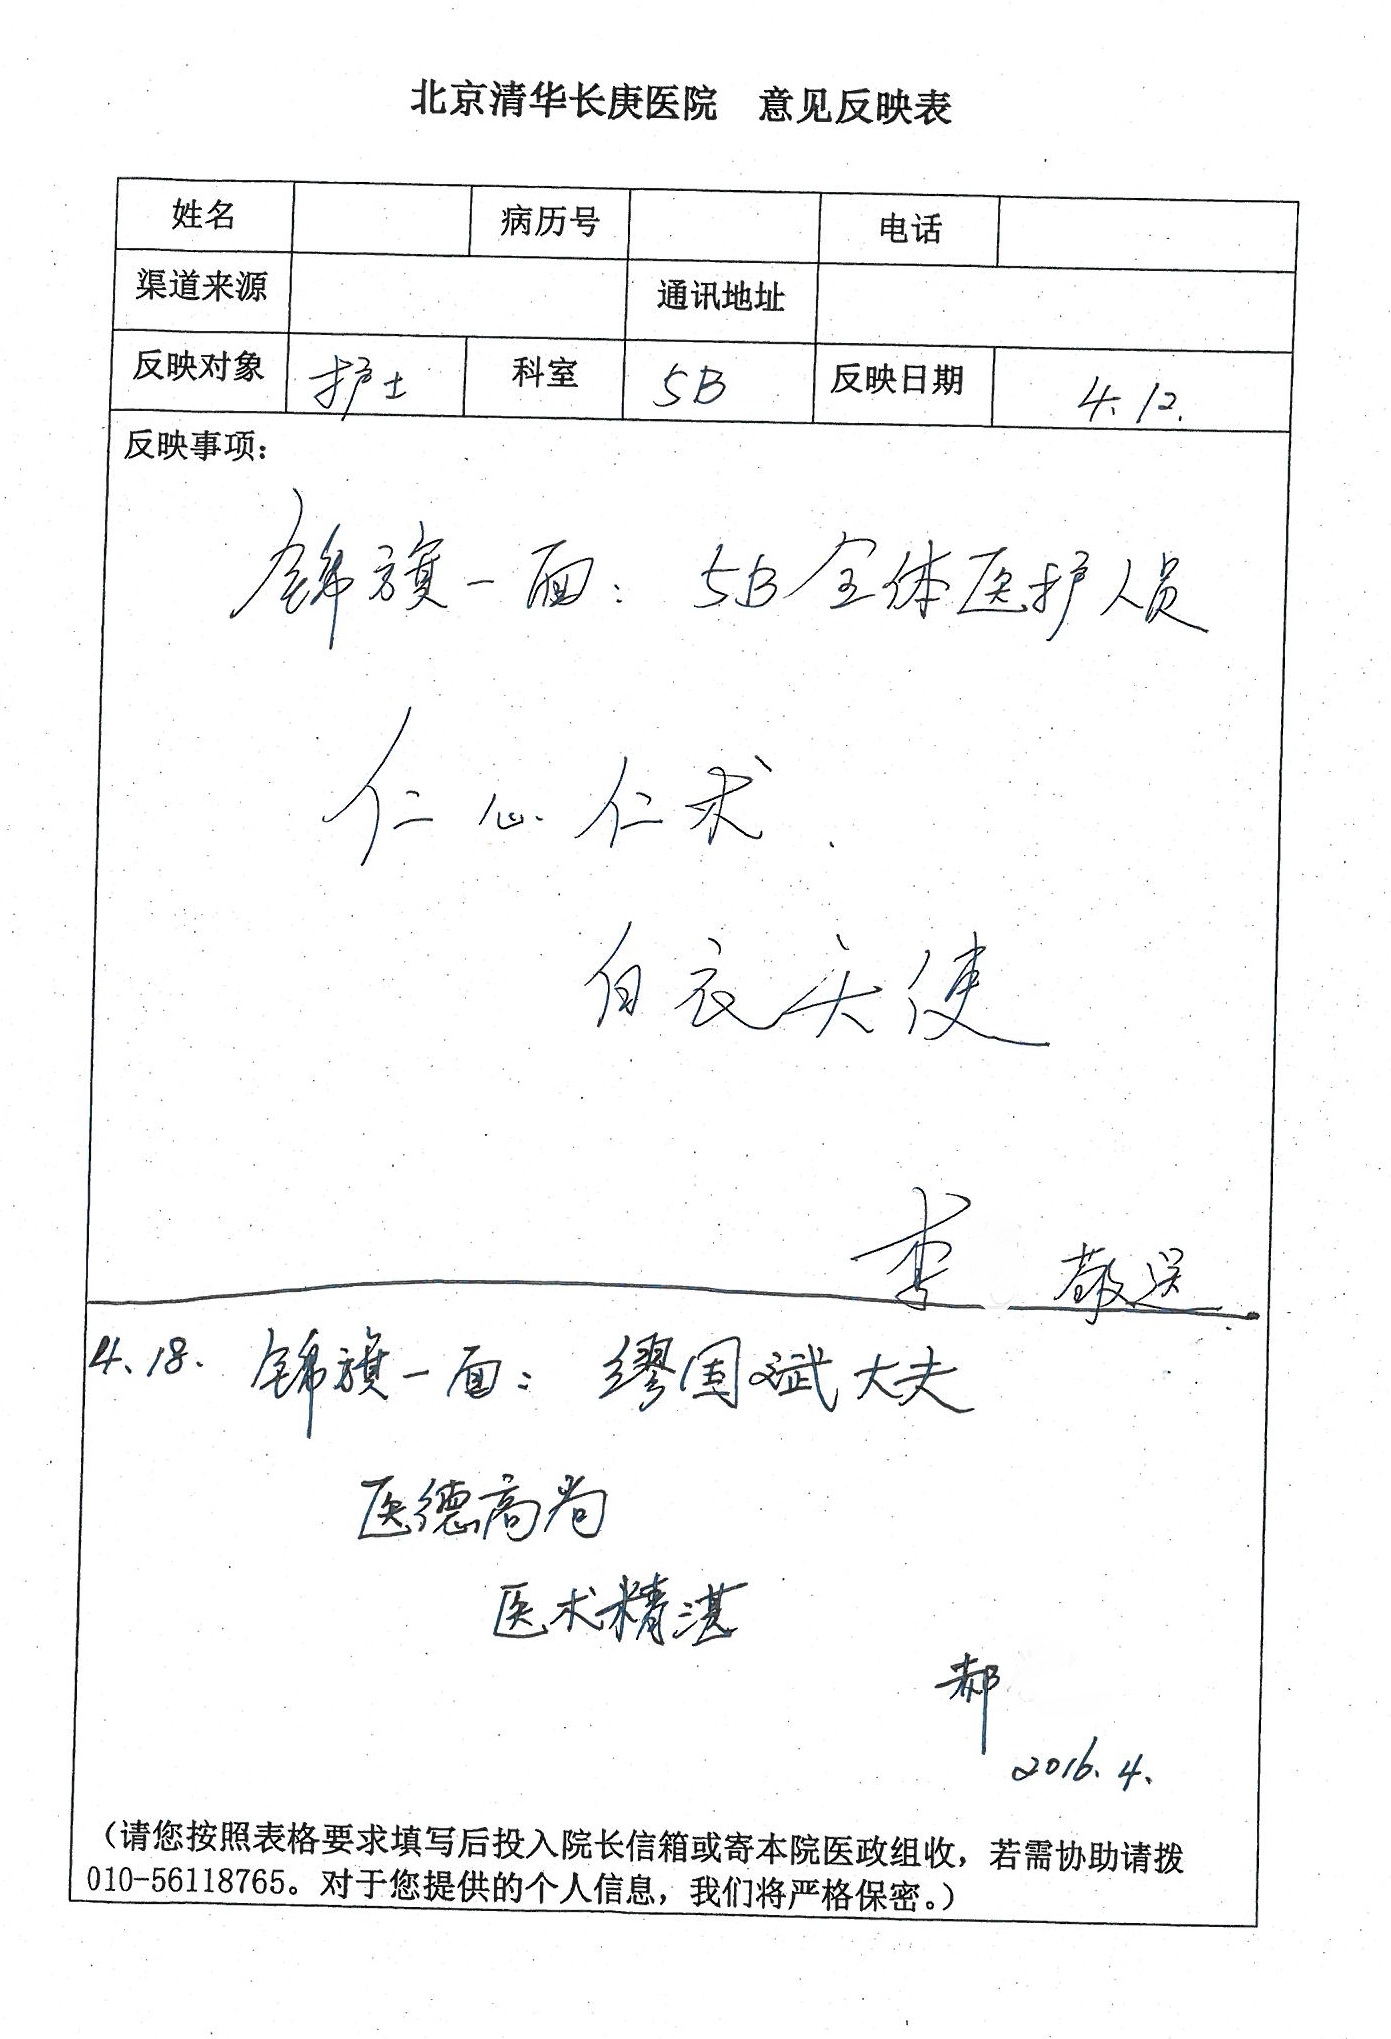 北京清华长庚医院 意见反映表
姓名 病历号 电话
渠道来源 通讯地址
反映对象 护士 科室 5B 反映日期 4.12.
反映事项：
锦旗一面：5B全体医护人员
仁心仁术
白衣天使
李 敬送
4.18. 锦旗一面：缪国斌大夫
医德高尚
医术精湛
郝
2016.4.
（请您按照表格要求填写后投入院长信箱或寄本院医政组收，若需协助请拨
010-56118765。对于您提供的个人信息，我们将严格保密。）